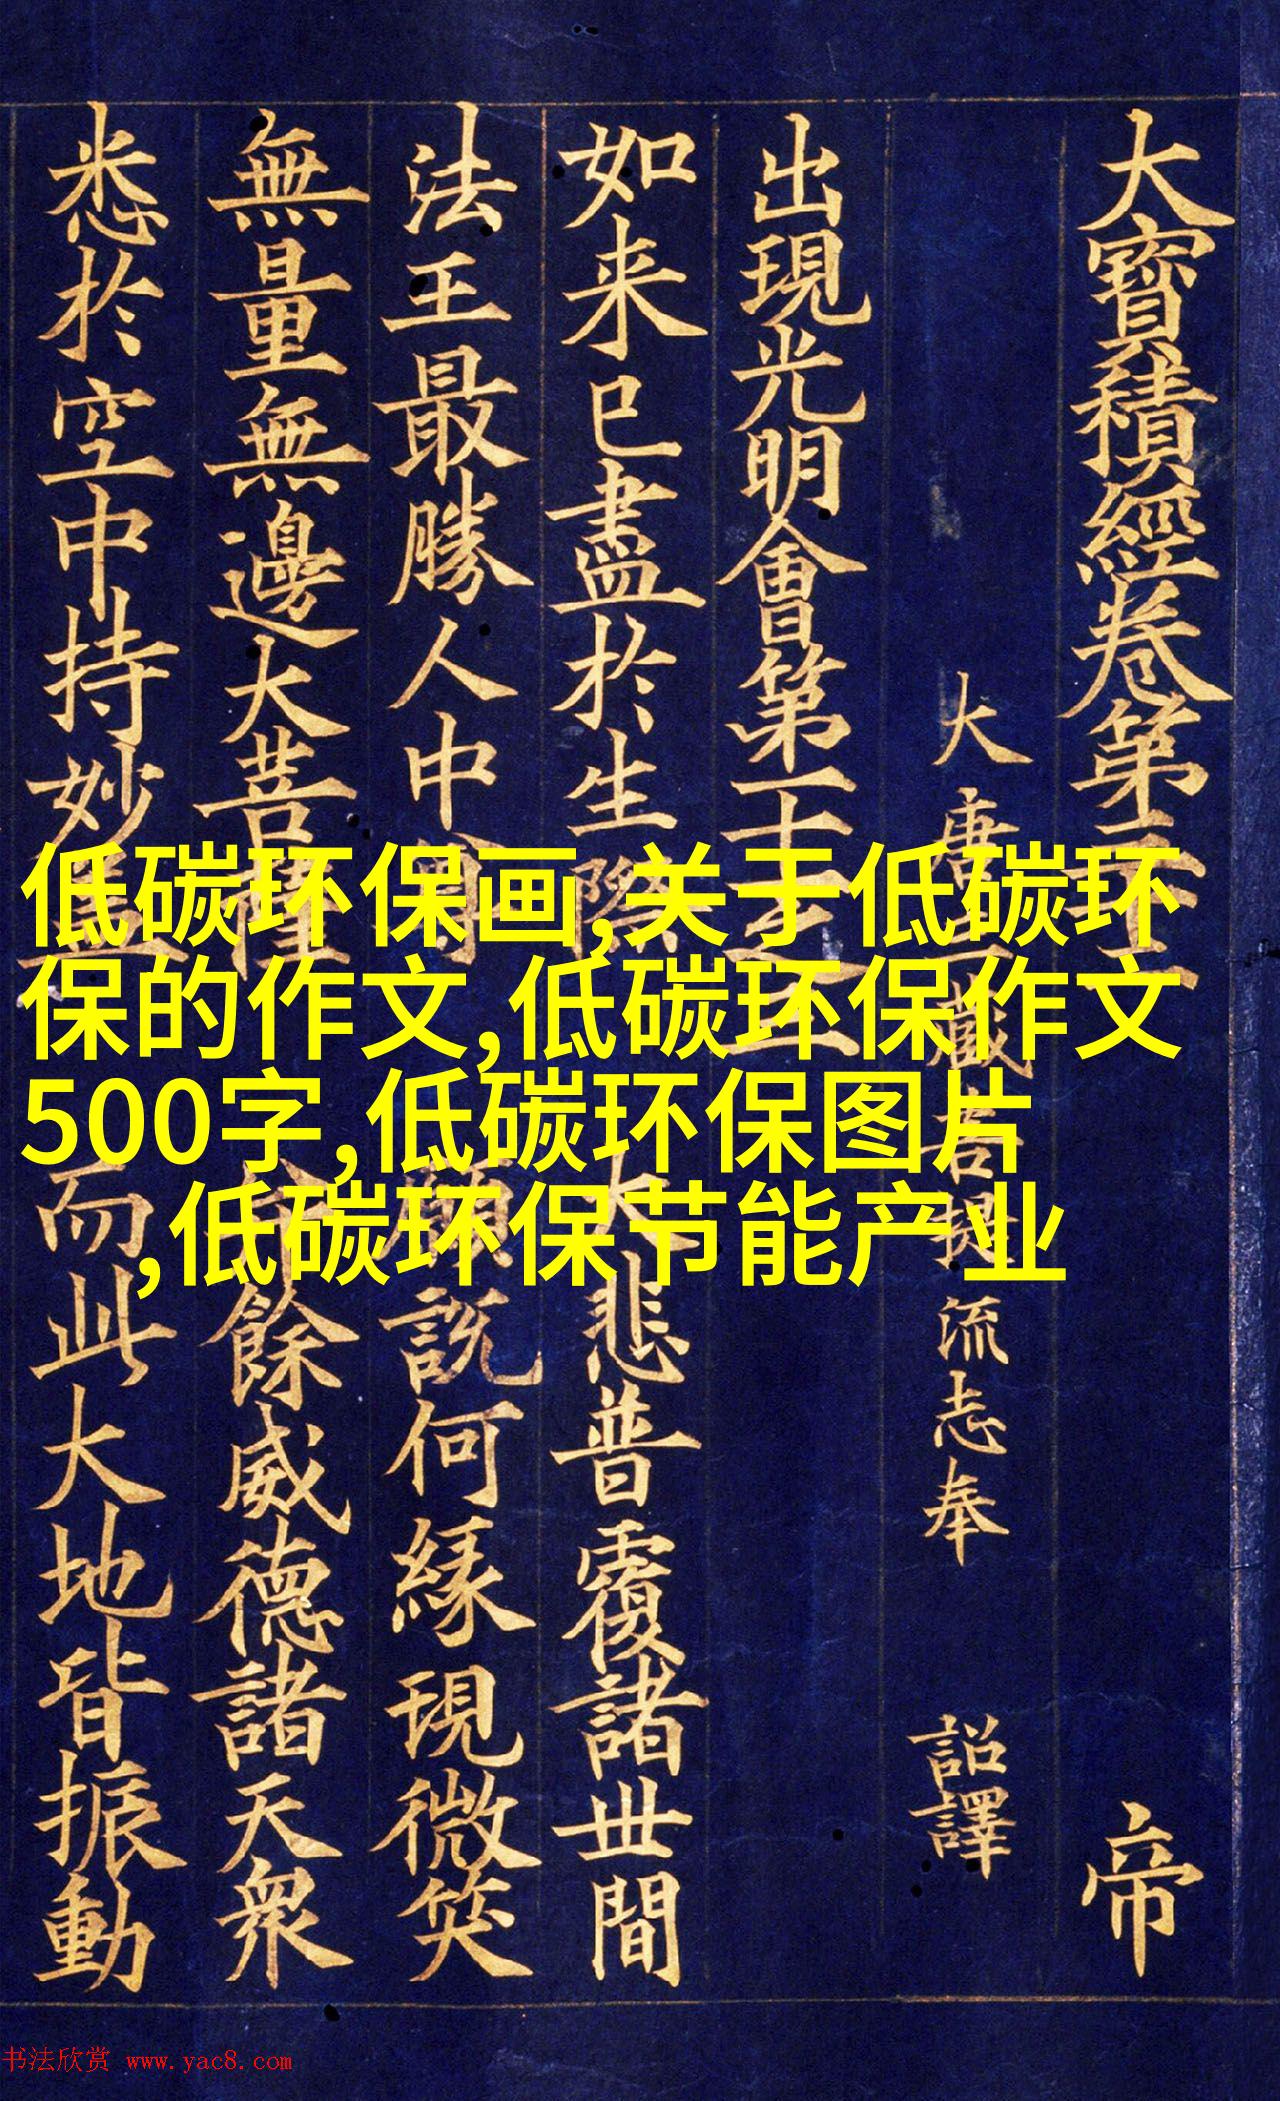 大寶積經卷第三十 帝
大唐三藏菩提流志奉 詔譯
出現光明會第十一之三
如来已盡於生際 大悲普覆諸世間
法王最勝人中尊 願説何緣現微笑
無量無邊大菩薩 餘威德諸天衆
悉於空中持妙蓋 而此大地皆振動
低碳环保画,关于低碳环
保的作文,低碳环保作文
500字,低碳环保图片
,低碳环保节能产业
书法欣赏 www.yac8.com